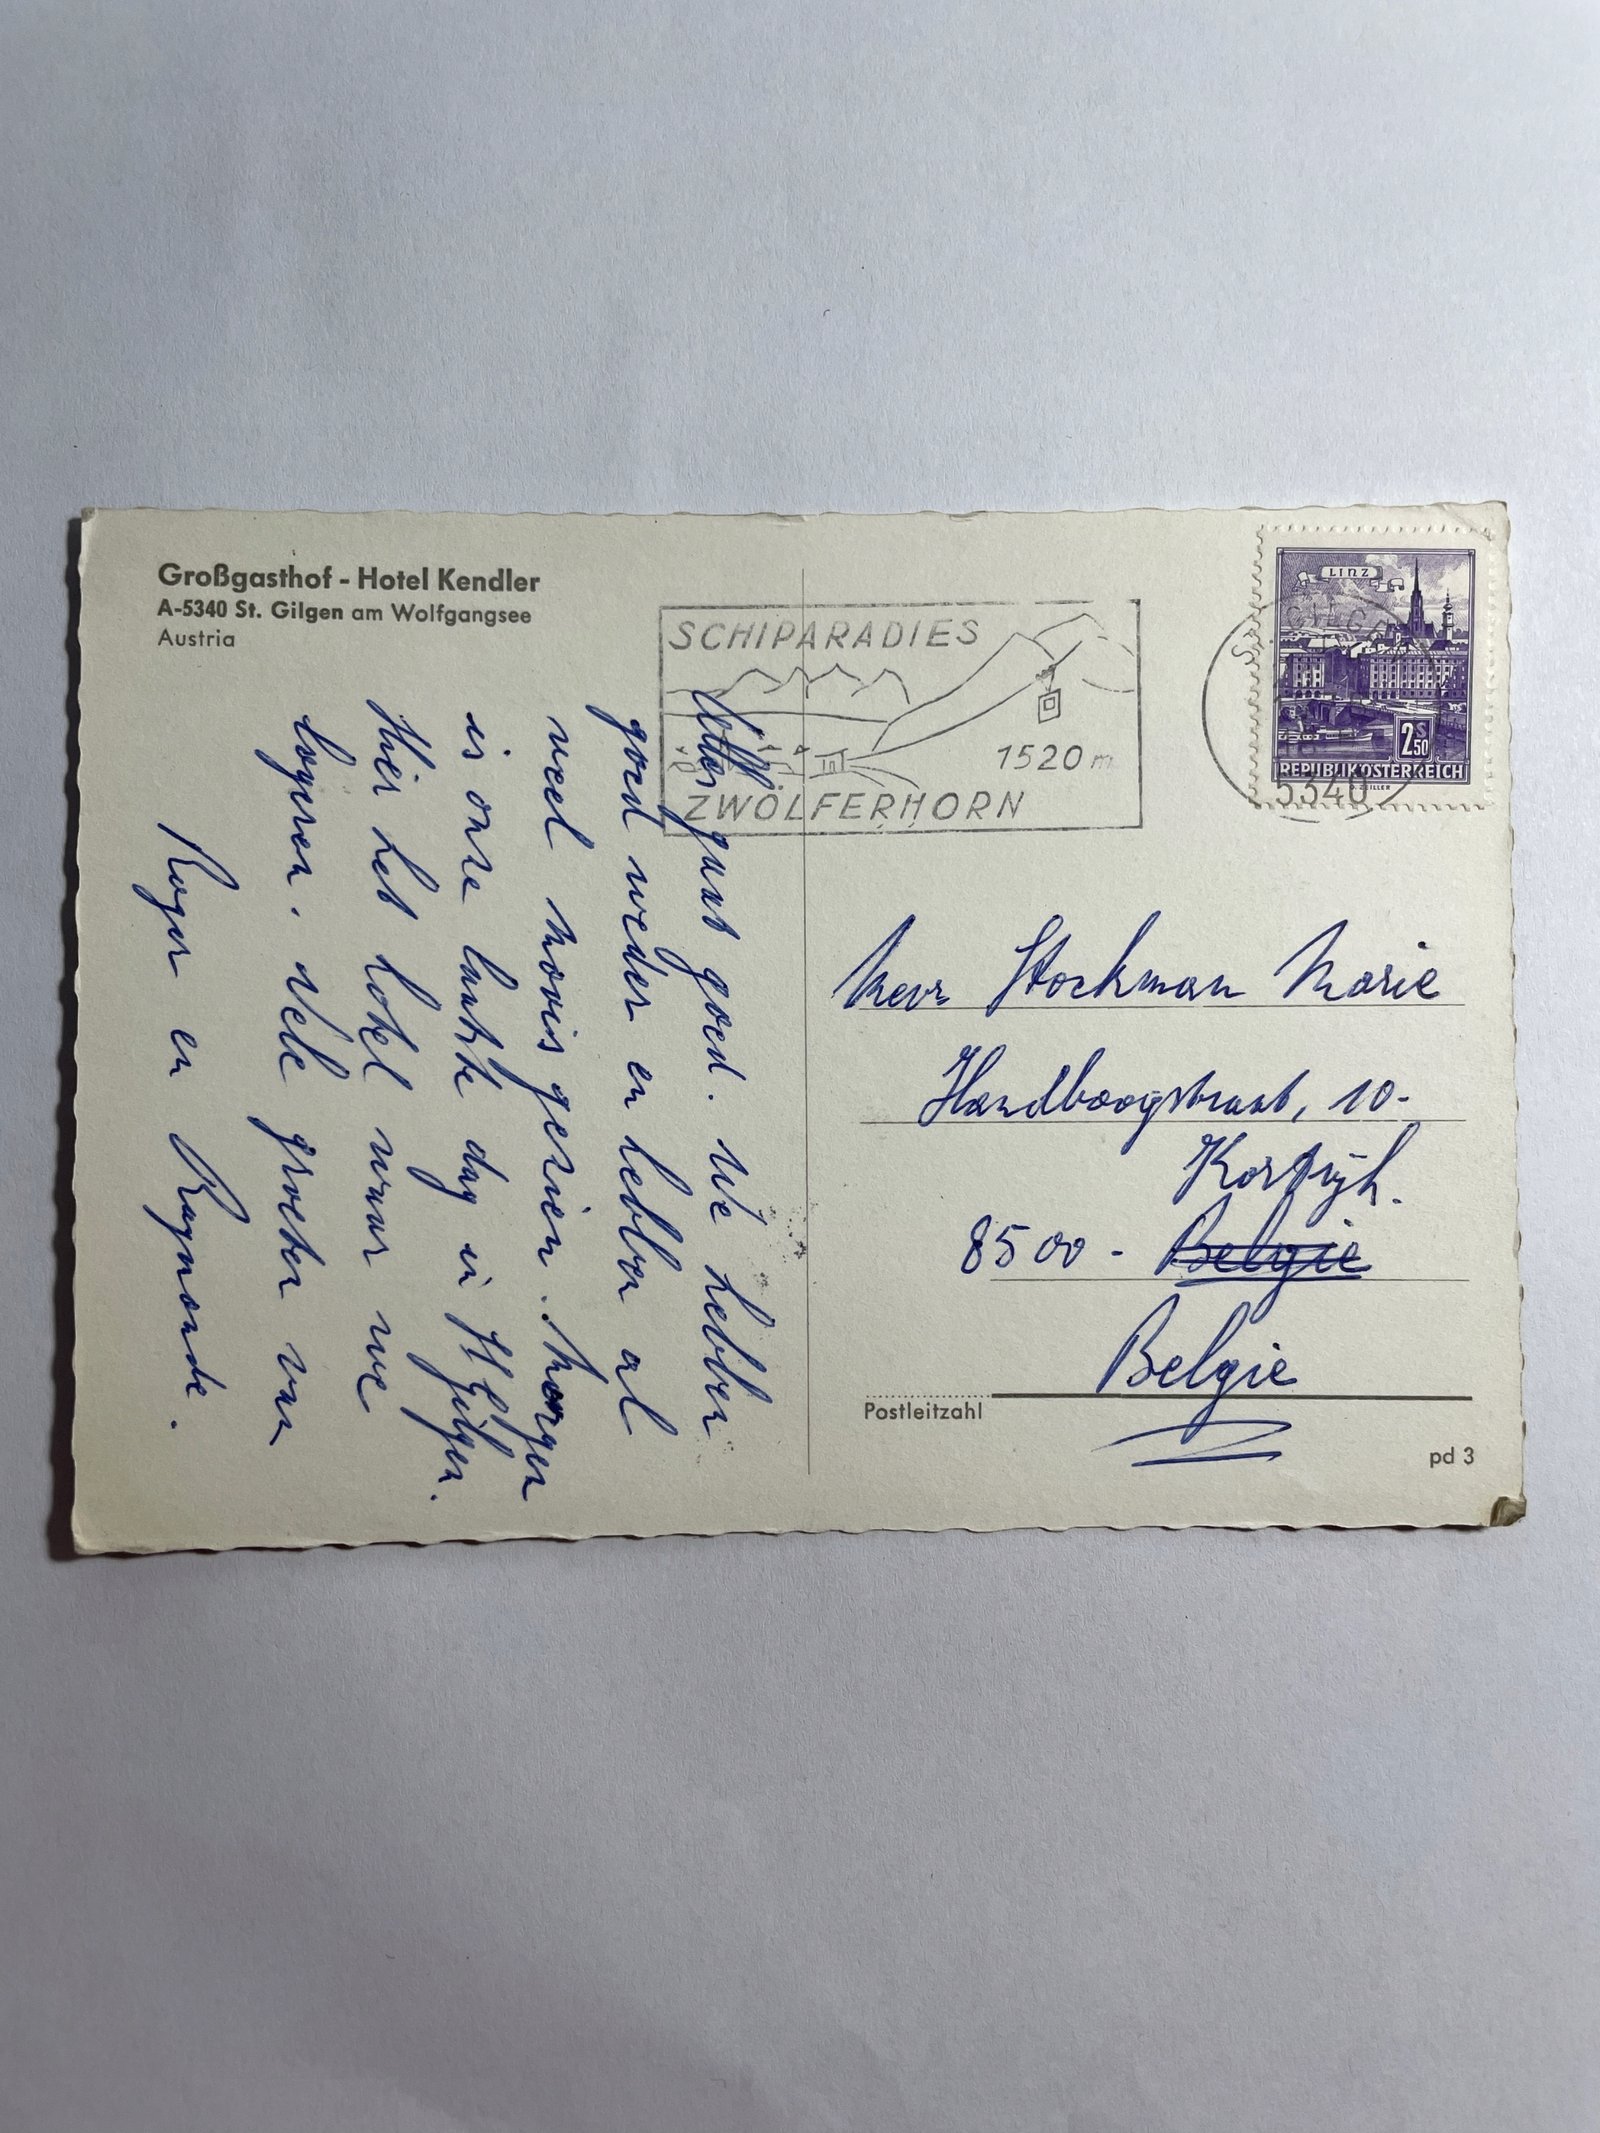 Großgasthof - Hotel Kendler
A-5340 St. Gilgen am Wolfgangsee
Austria
SCHIPARADIES
1520 m
ZWÖLFERHORN
ST. GILGEN
5340
LINZ
2S 50
REPUBLIK ÖSTERREICH
Alles gaat goed. We hebben
goed weder en hebben al
veel moois gezien. Morgen
is onze laatste dag in St Gilgen.
Hier het hotel waar we
logeren. Vele groeten van
Roger en Raymonde.
Mevr Stockman Marie
Handboogstraat, 10-
Kortrijk.
8500 - Belgie
Belgie
Postleitzahl
pd 3